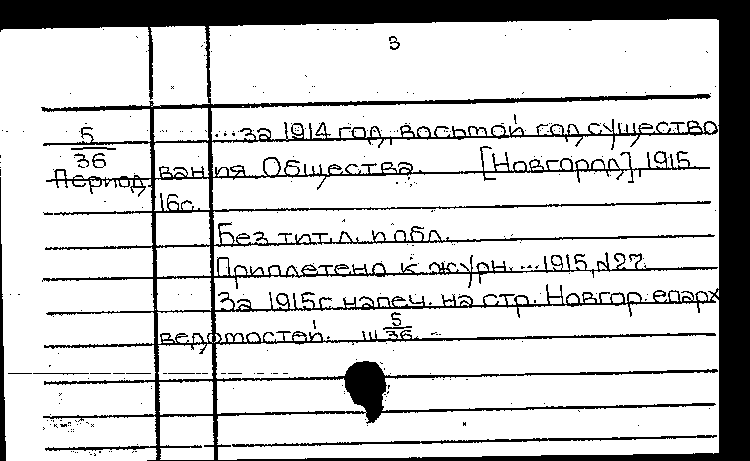 3
5/36 ...за 1914 год, восьмой год существо
Период. вания Общества. [Новгород], 1915
16с.
Без тит.л. и обл.
Приплетено к журн. ...1915, №27.
За 1915г напеч. на стр. Новгор. епарх
ведомостей. Ш 5/36.